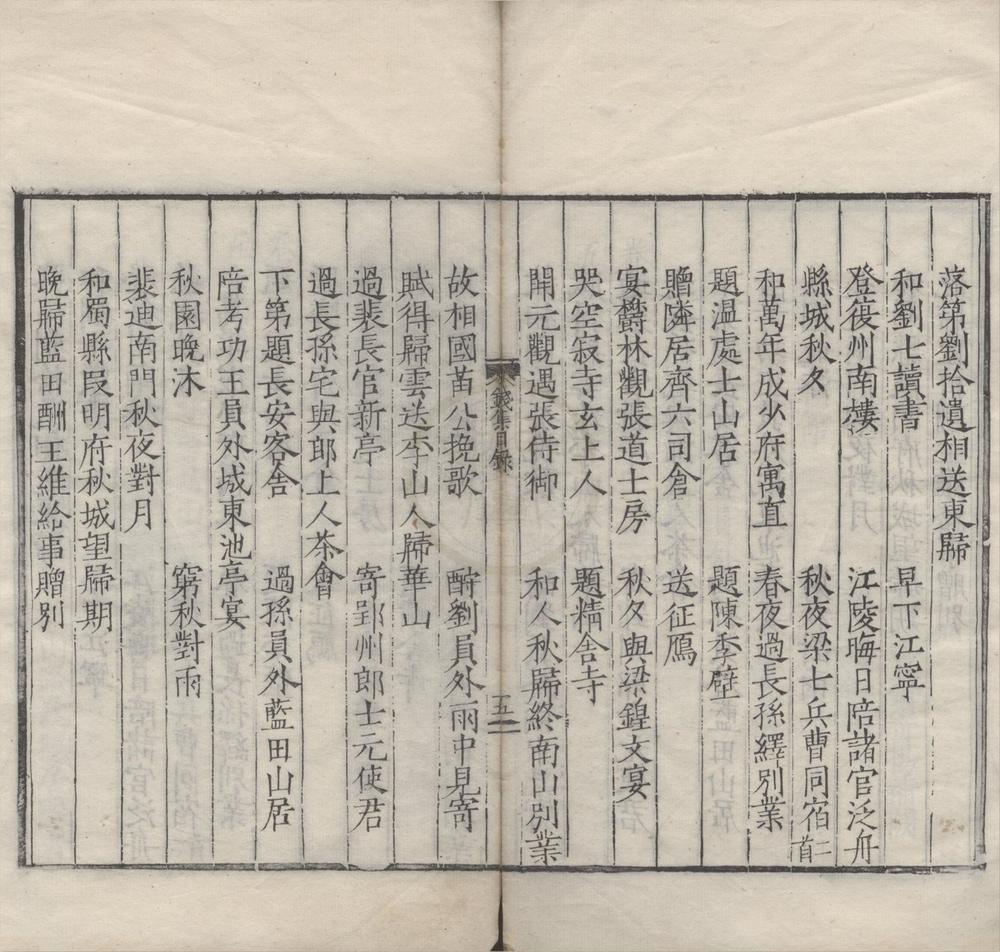 落第劉拾遺相送東歸
和劉七讀書　早下江寧
登復州南樓　江陵晦日陪諸官泛舟
縣城秋夕　秋夜梁七兵曹同宿二首
和萬年成少府寓直　春夜過長孫繹別業
題溫處士山居　題陳季壁
贈隣居齊六司倉　送征鴈
宴欝林觀張道士房　秋夕與梁鍠文宴
哭空寂寺玄上人　題精舍寺
開元觀遇張侍御　和人秋歸終南山別業
錢集目錄　五
故相國苗公挽歌　酧劉員外雨中見寄
賦得歸雲送李山人歸華山
過裴長官新亭　寄郢州郎士元使君
過長孫宅與郎上人茶會
下第題長安客舍　過孫員外藍田山居
陪考功王員外城東池亭宴
秋園晚沐　窮秋對雨
裴迪南門秋夜對月
和蜀縣叚明府秋城望歸期
晚歸藍田酬王維給事贈別